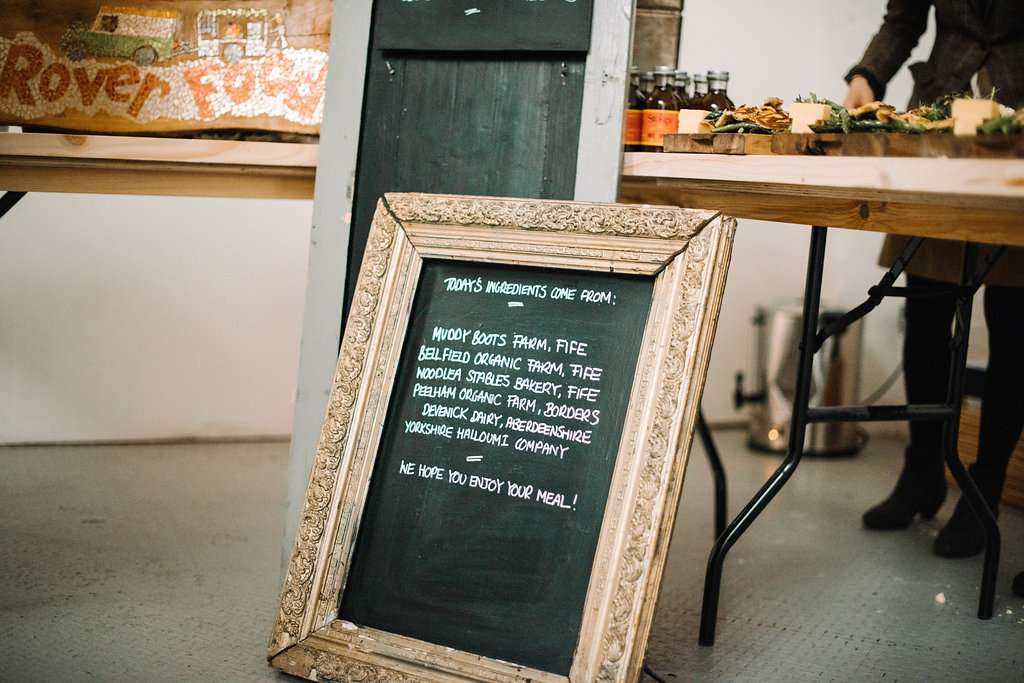 Rover
TODAY'S INGREDIENTS COME FROM:
MUDDY BOOTS FARM, FIFE
BELLFIELD ORGANIC FARM, FIFE
NOODLEA STABLES BAKERY, FIFE
PEELHAM ORGANIC FARM, BORDERS
DEVENICK DAIRY, ABERDEENSHIRE
YORKSHIRE HALLOUMI COMPANY
WE HOPE YOU ENJOY YOUR MEAL!